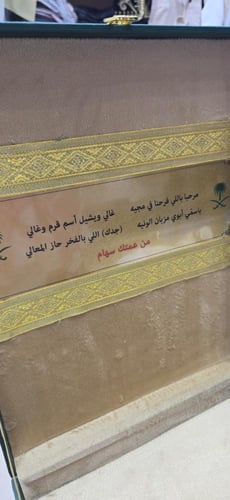 مرحبا باللي فرحنا في مجيه غالي ويشيل أسم قرم وغالي
ياسمّي أبوي مزبان الونيه (جدك) اللي بالفخر حاز المعالي
من عمتك سهام